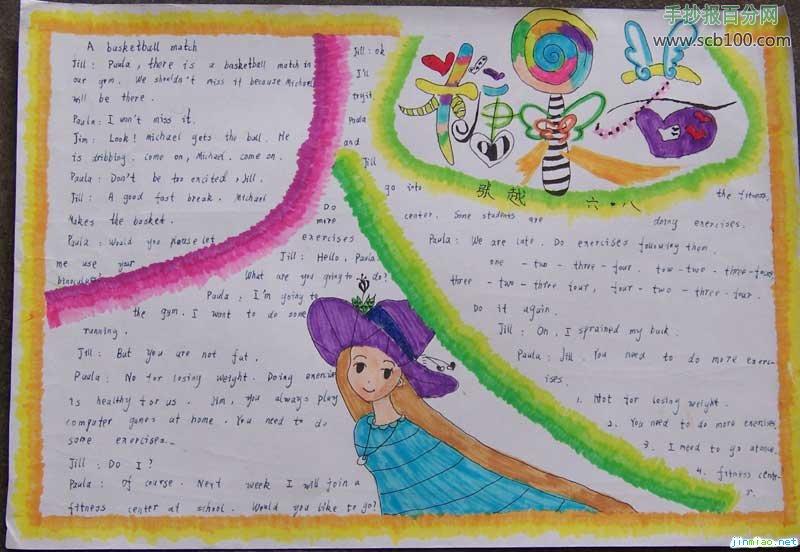 A basketball match
Jill: Paula, there is a basketball match in
our gym. We shouldn't miss it because Michael
will be there.
Paula: I won't miss it.
Jim: Look! michael gets the ball. He
is dribbling. come on, Michael. come on.
Paula: Don't be too excited, Jill.
Jill: A good fast break. Michael
Makes the basket.
Paula: Would you please let
me use your
binoculars?
Jill: ok
I'll
try it.
Paula
and
Jill
go into
the fitness
center. Some students are
doing exercises.
Paula: We are late. Do exercises following them.
one - two - three - four. tow - two - three - four,
three - two - three four, four - two - three - four.
Do it again.
Jill: Oh, I sprained my back.
Paula: Jill. You need to do more exerc-
ises.
1. Not for losing weight.
2. You need to do more exercises
3. I need to go at once.
4. fitness cente-
r.
Do
more
exercises
Jill: Hello, Paula
What are you going to do?
Paula: I'm going to
the gym. I want to do some
running.
Jill: But you are not fat.
Paula: No for losing weight. Doing exercise
is healthy for us. Jim, you always play
computer games at home. You need to do
some exercises.
Jill: Do I?
Paula: Of course. Next week I will join a
fitness center at school. Would you like to go?
张越 六.八
手抄报百分网
www.scb100.com
jinmiao.net